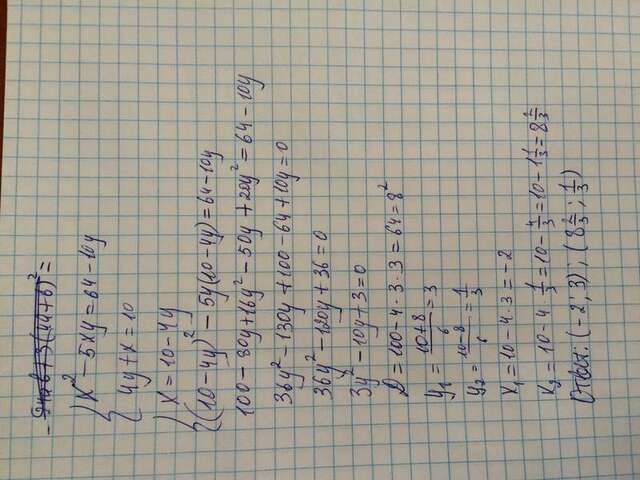 - 24ab + 3(4a+b)² =
{ x² - 5xy = 64 - 10y
4y + x = 10
{ x = 10 - 4y
(10 - 4y)² - 5y(10 - 4y) = 64 - 10y
100 - 80y + 16y² - 50y + 20y² = 64 - 10y
36y² - 130y + 100 - 64 + 10y = 0
36y² - 120y + 36 = 0
3y² - 10y + 3 = 0
D = 100 - 4 · 3 · 3 = 64 = 8²
y₁ = \frac{10+8}{6} = 3
y₂ = \frac{10-8}{6} = \frac{1}{3}
x₁ = 10 - 4 · 3 = -2
x₂ = 10 - 4 · \frac{1}{3} = 10 - \frac{4}{3} = 10 - 1\frac{1}{3} = 8\frac{2}{3}
Ответ: (-2; 3); (8\frac{2}{3}; \frac{1}{3})